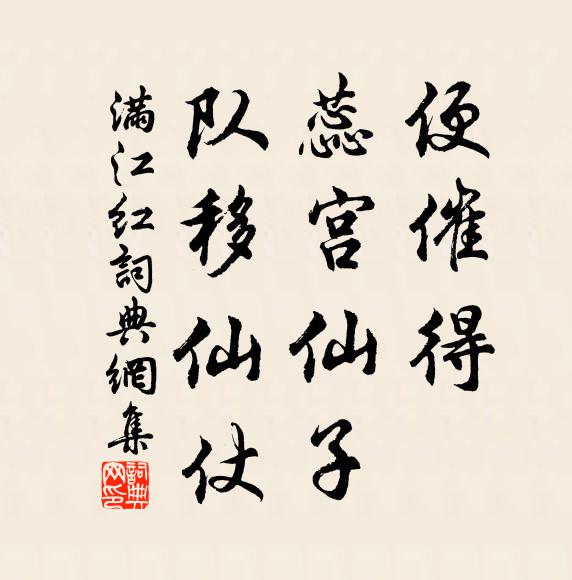 便催得
蕊宫仙子
队移仙仗
满江红詞典網集
詞典
网印